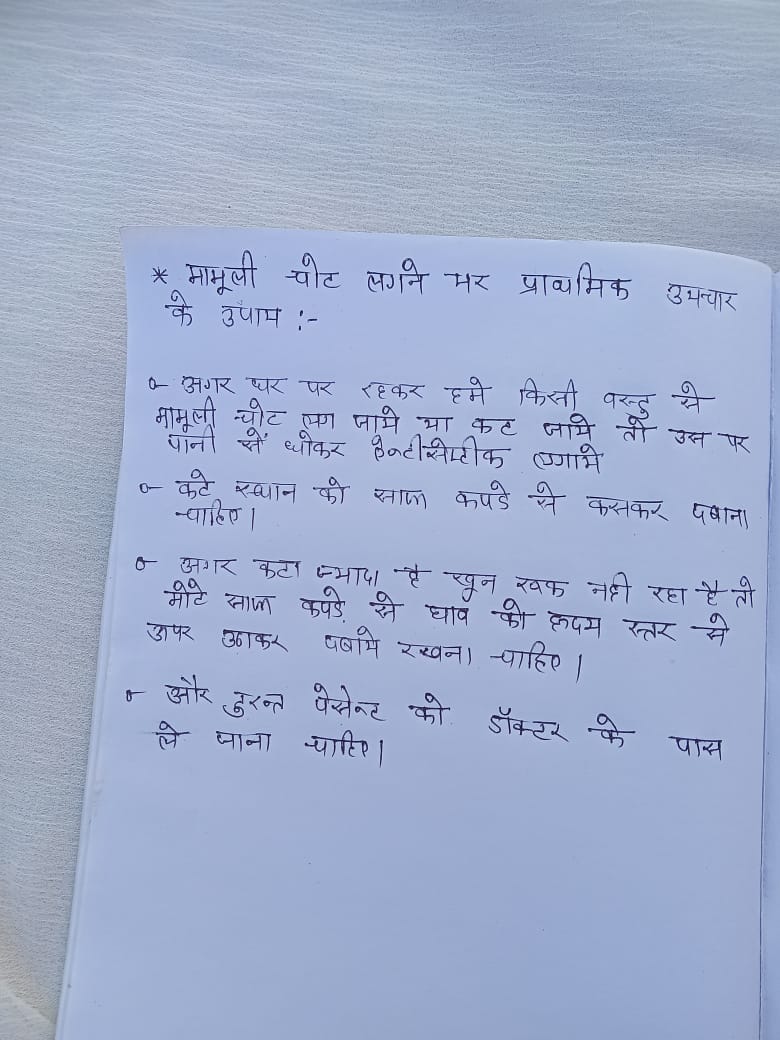 * मामूली चोट लगने पर प्राथमिक उपचार
के उपाय :-
अगर घर पर रहकर हमे किसी वस्तु से
मामूली चोट लग जाये या कट जाये तो उस पर
पानी से धोकर ऐन्टीसेप्टीक लगाये
कटे स्थान को साफ कपडे से कसकर दबाना
चाहिए।
अगर कटा ज्यादा है खून रूक नही रहा है तो
मोटे साफ कपडे से घाव को हृदय स्तर से
ऊपर उठाकर दबाये रखना चाहिए।
और तुरन्त पेसेन्ट को डॉक्टर के पास
ले जाना चाहिए।